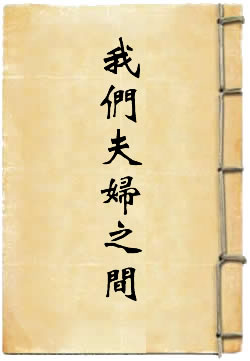 我們夫婦之間